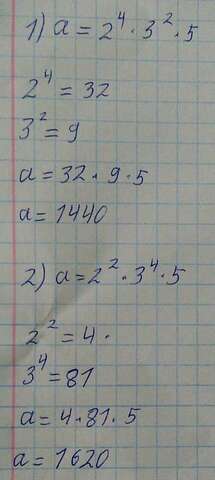 1) a = 2⁴ · 3² · 5
2⁴ = 32
3² = 9
a = 32 · 9 · 5
a = 1440
2) a = 2² · 3⁴ · 5
2² = 4 ·
3⁴ = 81
a = 4 · 81 · 5
a = 1620